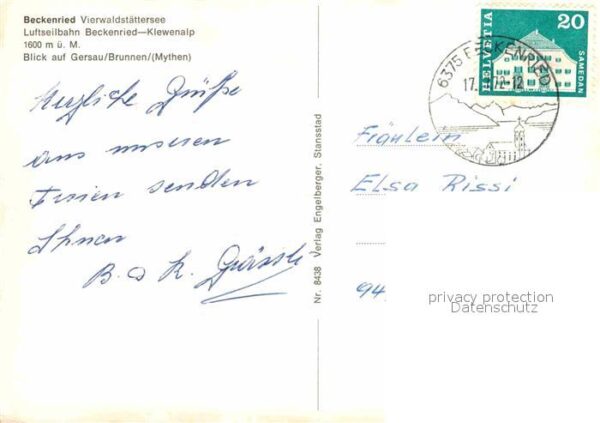 Beckenried Vierwaldstättersee
Luftseilbahn Beckenried—Klewenalp
1600 m ü. M.
Blick auf Gersau/Brunnen/(Mythen)
Herzliche Grüsse
aus unseren
Ferien senden
Ihnen
B. u K.
Nr. 8438 Verlag Engelberger, Stansstad
HELVETIA
20
SAMEDAN
6375 BECKENRIED
17. 72-12
Fräulein
Elsa Rissi
94
privacy protection
Datenschutz